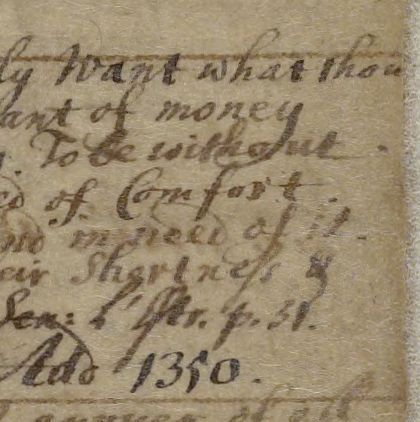 ly Want what thou
ant of money
To be without
ed of Comfort
and in need of it.
eir Shortness &
Sen: L'Str. p. 31.
Ado 1350.